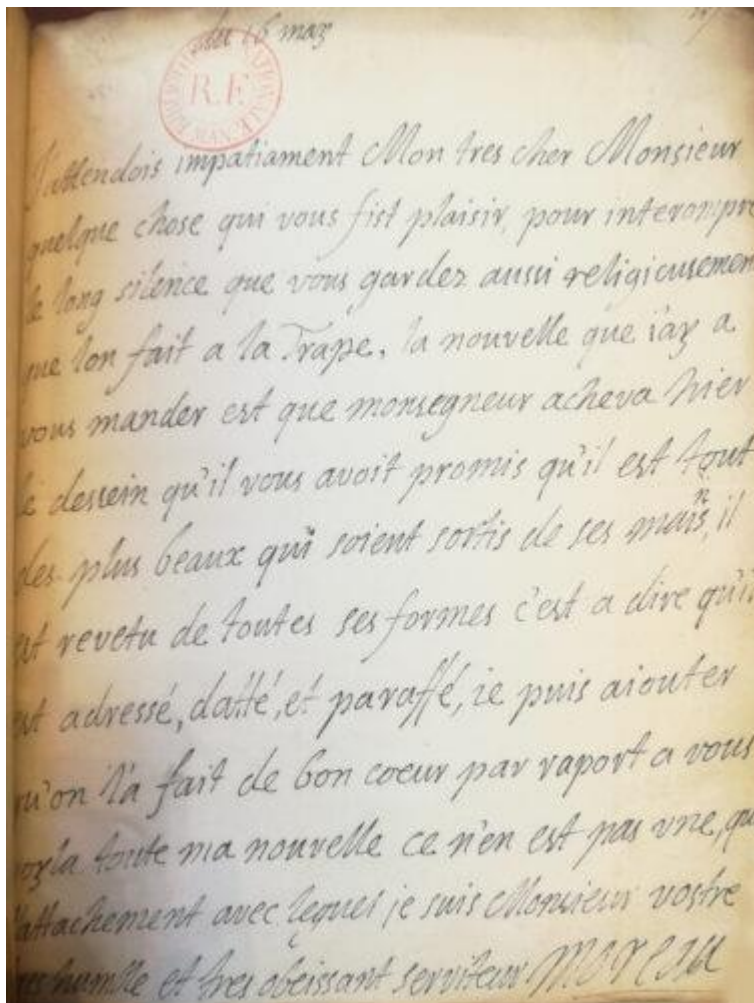 du 16 may
BIBLIOTHEQUE NATIONALE
R.F.
J'attendois impatiament Mon tres cher Monsieur
quelque chose qui vous fist plaisir, pour interompre
le long silence que vous gardez aussi religieusement
que lon fait a la Trape, la nouvelle que i'ay a
vous mander est que monsegneur acheva hier
le dessein qu'il vous avoit promis qu'il est tout
des plus beaux qui soient sortis de ses mains, il
est revetu de toutes ses formes c'est a dire qu'il
est adressé, datté, et paraffé, ie puis aiouter
qu'on l'a fait de bon coeur par raport a vous
voyla toute ma nouvelle ce n'en est pas vne, que
l'attachement avec lequel je suis Monsieur vostre
tres humble et tres obeissant serviteur Moreau